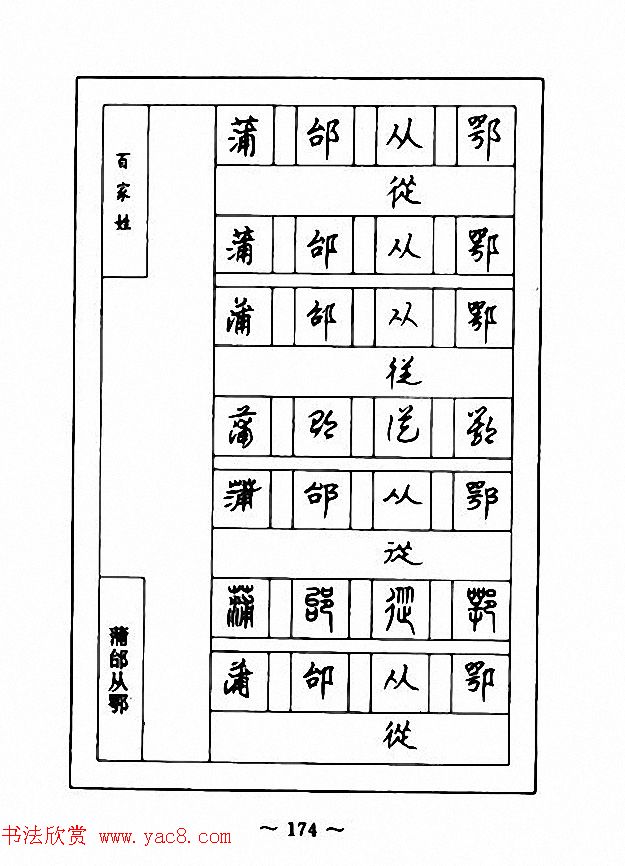 百家姓
蒲邰从鄂
蒲 邰 从 鄂
從
蒲 邰 从 鄂
蒲 邰 从 鄂
從
蒲 邰 從 鄂
蒲 邰 从 鄂
從
蒲 邰 從 鄂
蒲 邰 从 鄂
從
～ 174 ～
书法欣赏 www.yac8.com